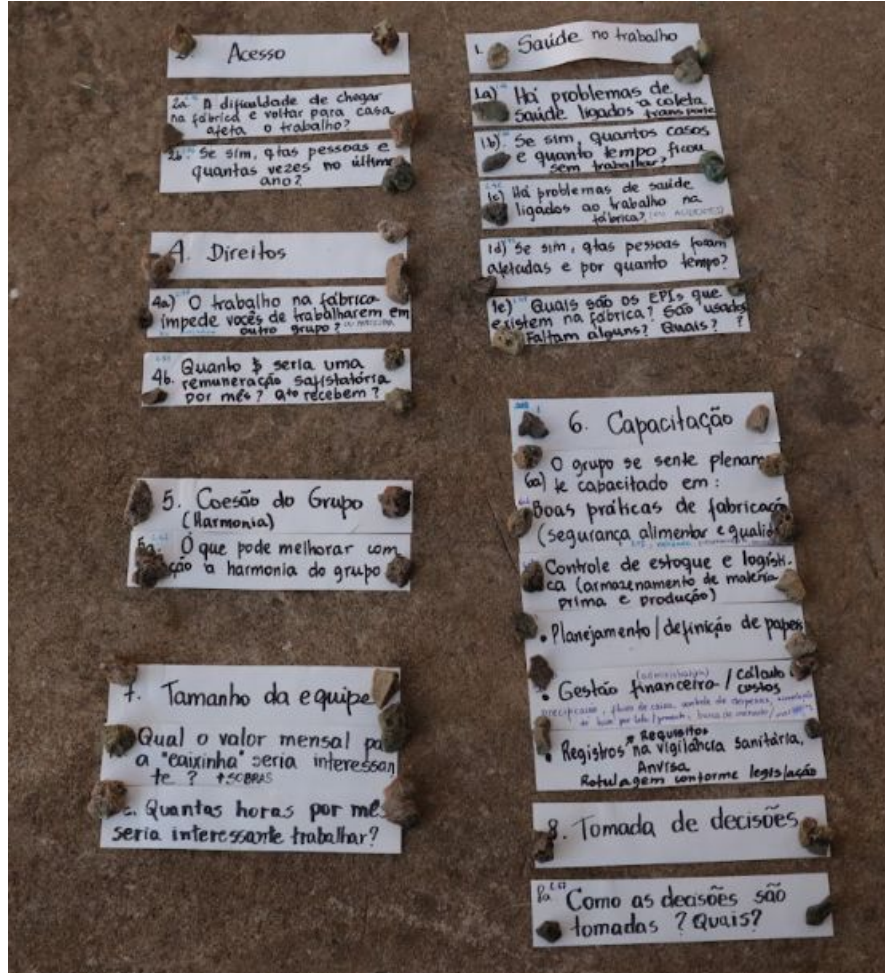 2. Acesso
2a. A dificuldade de chegar
na fábrica e voltar para casa
afeta o trabalho?
2b. Se sim, qtas pessoas e
quantas vezes no último
ano?
4. Direitos
4a) O trabalho na fábrica
impede vocês de trabalharem em
outro grupo?
4b. Quanto $ seria uma
remuneração satistatória
por mês? Qto recebem?
5. Coesão do Grupo
(Harmonia)
5a. O que pode melhorar com
a harmonia do grupo
7. Tamanho da equipe
Qual o valor mensal pa
a "caixinha" seria interessan
te? +SOBRAS
Quantas horas por mês
seria interessante trabalhar?
1. Saúde no trabalho
1a) Há problemas de
saúde ligados a coleta
transporte
1b). Se sim, quantos casos
e quanto tempo ficou
sem trabalhar?
1c) Há problemas de saúde
ligados ao trabalho na
fábrica? (OU ACIDENTES)
1d) Se sim, qtas pessoas foram
afetadas e por quanto tempo?
1e) Quais são os EPIs que
existem na fábrica? São usados
Faltam alguns? Quais? ?
6. Capacitação
6a) O grupo se sente plenam
te capacitado em:
Boas práticas de fabricação
(segurança alimentar e qualid
Controle de estoque e logísti-
ca (armazenamento de matéria
prima e produção)
• Planejamento / definição de papeis
(administrativa)
• Gestão financeira / cálculo
custos
precificação, fluxo de caixa, controle de despesas,
* Requisitos
• Registros na vigilância sanitária,
Anvisa
Rotulagem conforme legislação
8. Tomada de decisões
8a Como as decisões são
tomadas? Quais?